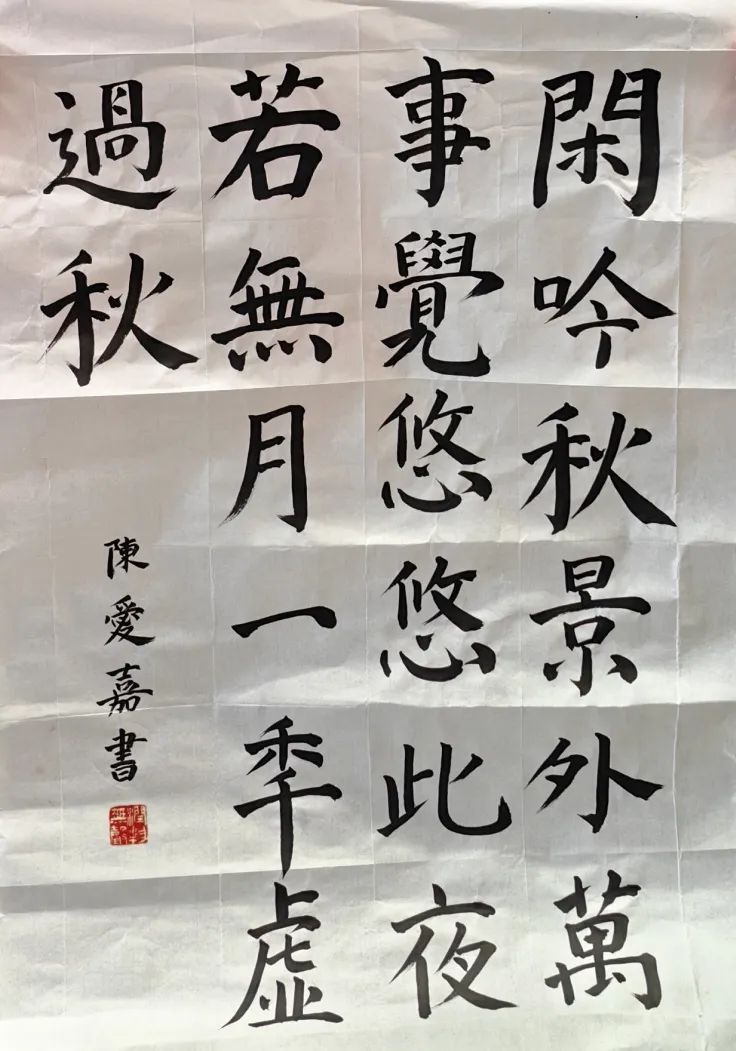 閑吟秋景外萬
事覺悠悠此夜
若無月一秊虛
過秋
陳愛嘉書